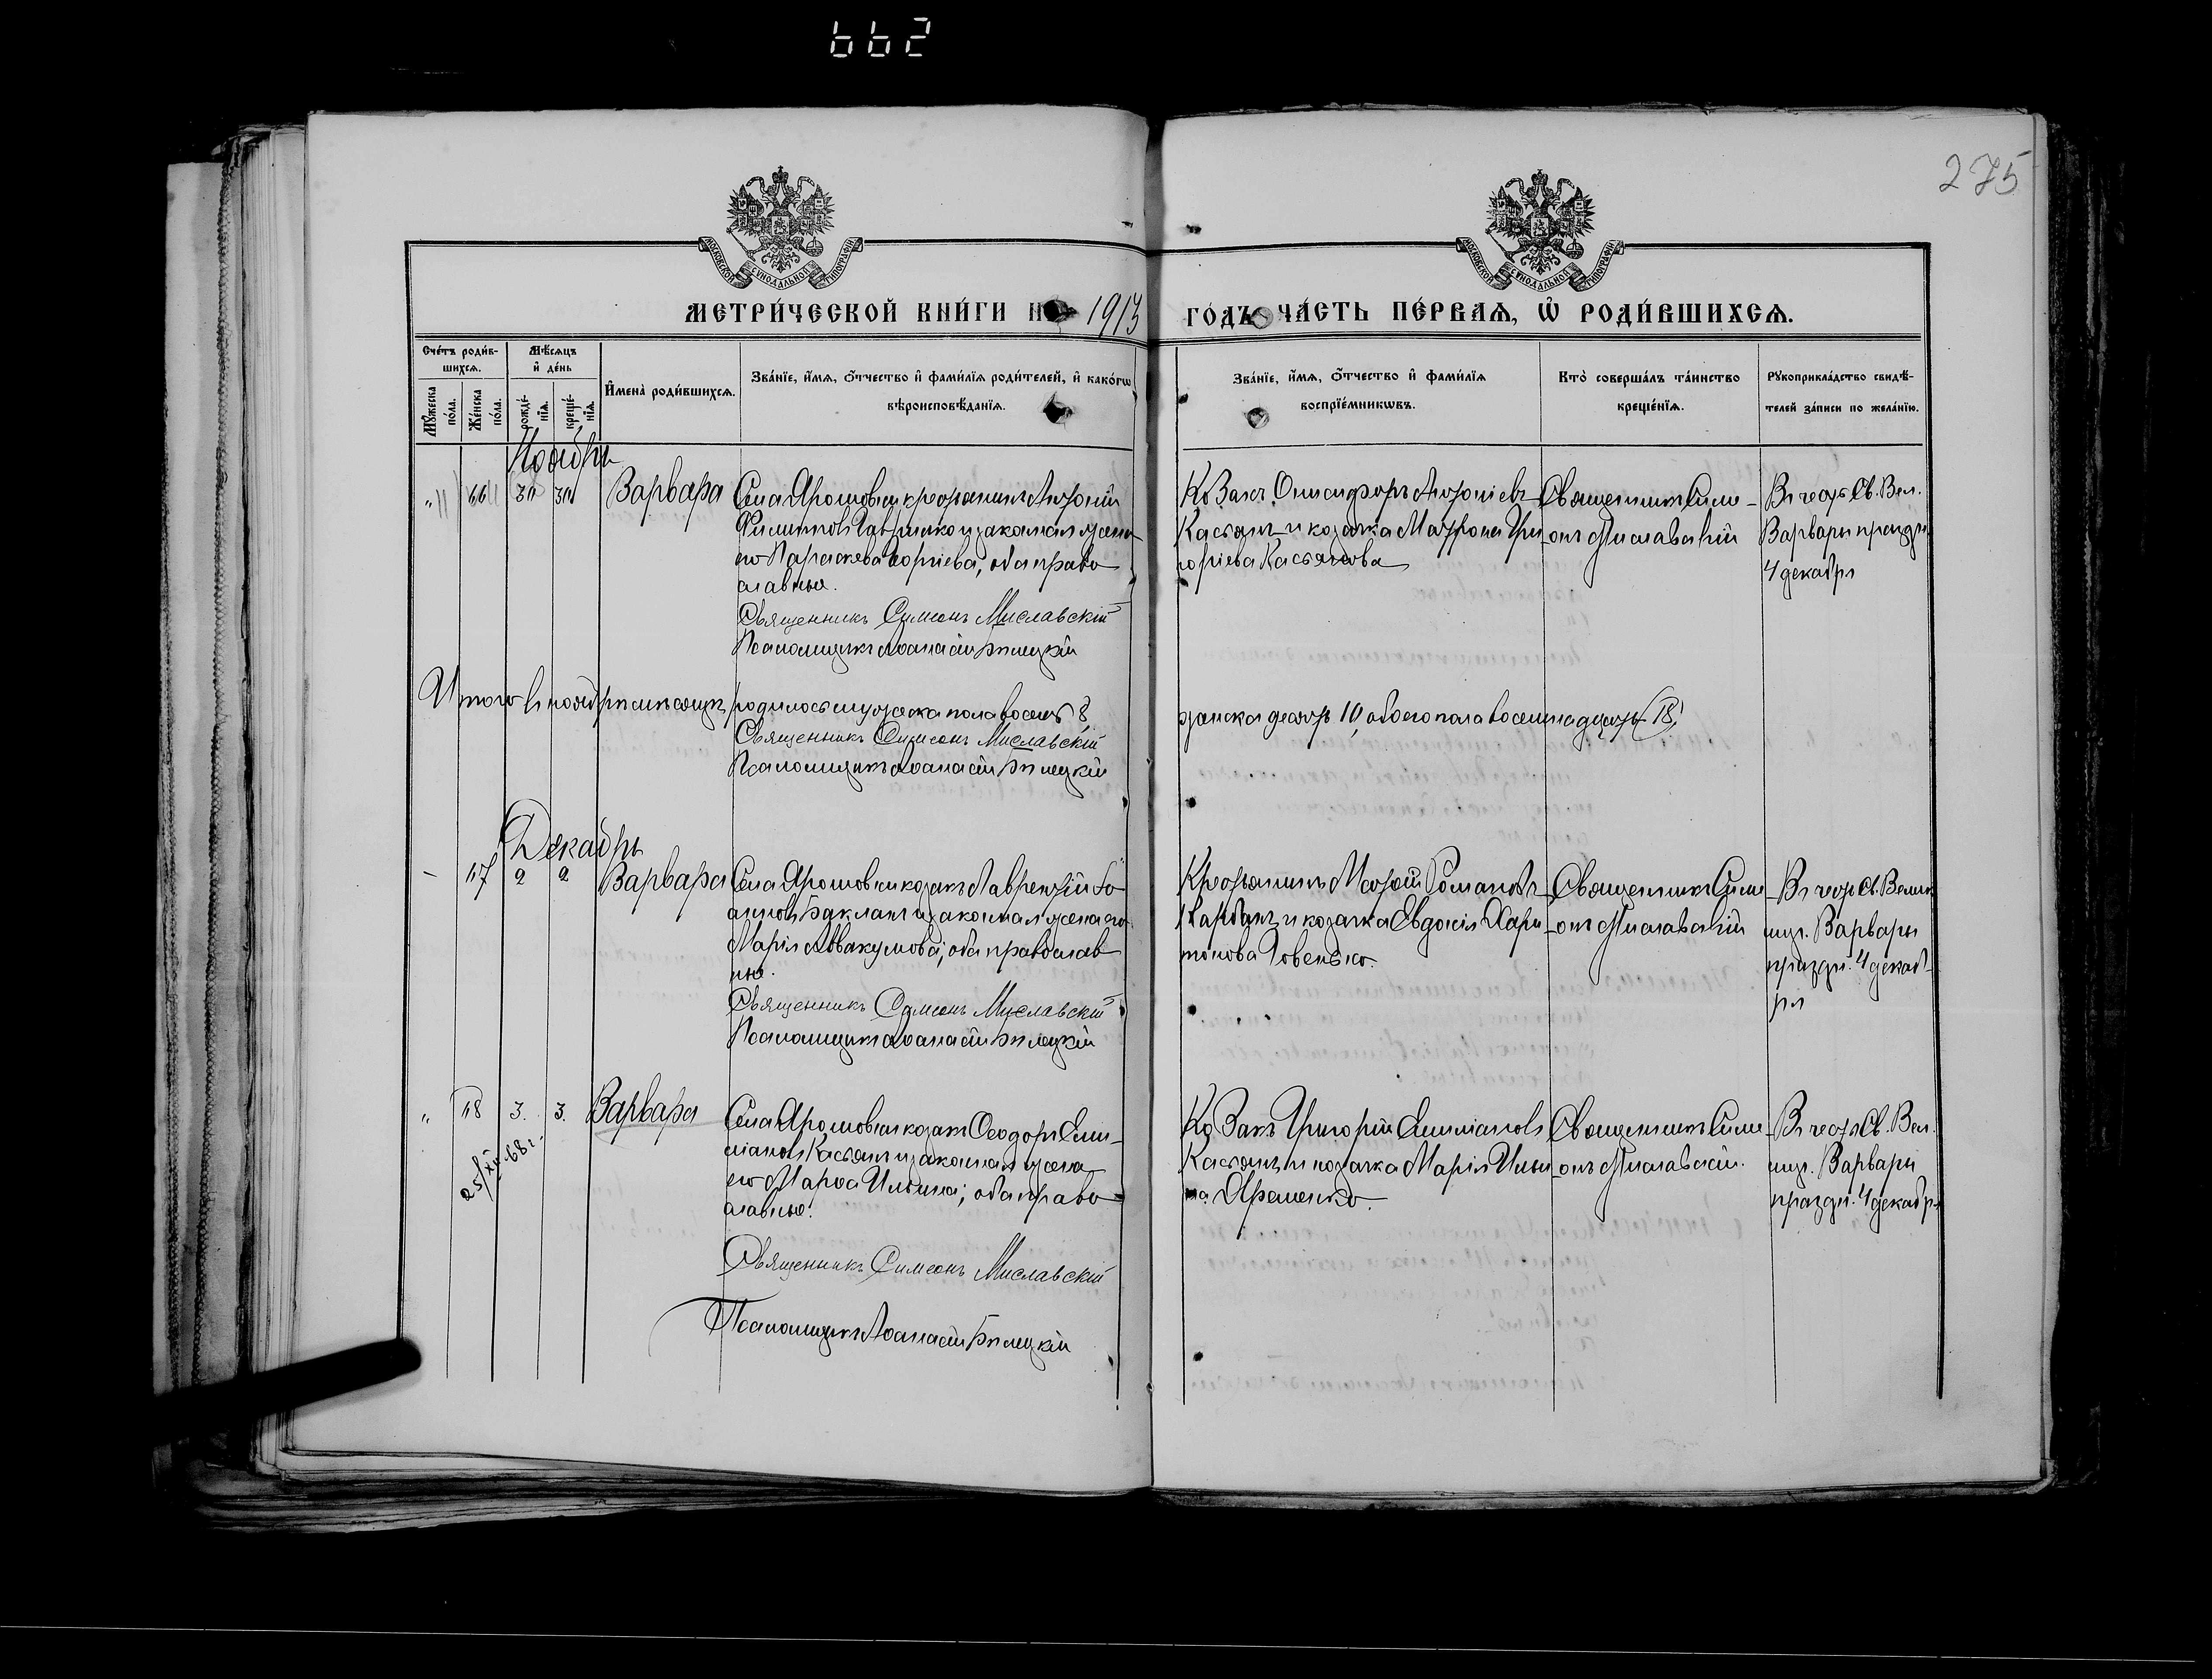 662
275
МОСКОВСКОЙ СУНОДАЛЬНОЙ ТИПОГРАФІИ
МОСКОВСКОЙ СУНОДАЛЬНОЙ ТИПОГРАФІИ
МЕТРИ́ЧЕСКОЙ КНИ́ГИ НА 1913 ГО́ДЪ ЧА́СТЬ ПЕ́РВАѦ, Ѡ҆ РОДИ́ВШИХСѦ.
Сче́тъ роди́в-
шихсѧ.
Мѣ́сѧцъ
и҆ де́нь
Мꙋ́жеска по́ла.
Же́нска по́ла.
рожде́-
нїѧ.
креще́-
нїѧ.
И҆мена̀ роди́вшихсѧ.
Зва́нїе, и҆́мѧ, ѻ҆́тчество и҆ фами́лїѧ роди́телей, и҆ како́гѡ
вѣроисповѣ́данїѧ.
Зва́нїе, и҆́мѧ, ѻ҆́тчество и҆ фами́лїѧ
воспрїе́мникѡвъ.
Кто̀ соверша́лъ та́инство
креще́нїѧ.
Рꙋкоприкла́дство свидѣ́-
телей за́писи по жела́нїю.
Ноябрь
" 66 30 30 Варвара
Села Ярошовки крестьянинъ
и законная жена
его Параскева, оба право
славные.
Священникъ Симеонъ Миславскій
Псаломщикъ Аѳанасій Бѣлецкій
Козакъ Онисифоръ
Касьянъ и козачка Матрона Гри
горіева Касьянова
Священникъ Симе-
онъ Миславскій
Въ честь Св. Вел.
Варвары праздн.
4 декабря
Итого въ ноябрѣ мѣсяцѣ родилось мужеска пола восемь 8,
женска десять 10, обоего пола восемнадцать (18)
Священникъ Симеонъ Миславскій
Псаломщикъ Аѳанасій Бѣлецкій
Декабрь
- 67 2 2 Варвара
Села Ярошовки козакъ Лаврентій Іо
анновъ Бакланъ и законная жена его
Марія Аввакумова, оба православ
ные.
Священникъ Симеонъ Миславскій
Псаломщикъ Аѳанасій Бѣлецкій
Крестьянинъ Романовъ
и козачка Евдокія Хари
тонова Ковенько.
Священникъ Симе
онъ Миславскій
Въ честь Св. Велико
муч. Варвары
праздн. 4 декаб
ря
" 68 3. 3. Варвара
25/XII-68 г.
Села Ярошовки козакъ Ѳеодоръ Емил
іановъ Касьянъ и законная жена
его Марѳа Ильина; оба право
славные.
Священникъ Симеонъ Миславскій
Псаломщикъ Аѳанасій Бѣлецкій
Козакъ Григорій Емиліановъ
Касьянъ и козачка Марія Ильи
на Яременко.
Священникъ Симе
онъ Миславскій.
Въ честь Св. Вел.
муч. Варвары
праздн. 4 декабря